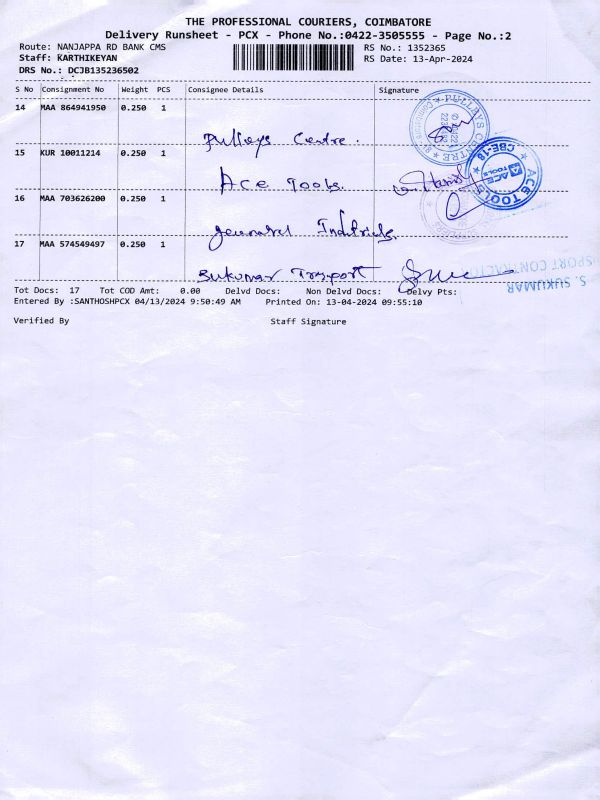 THE PROFESSIONAL COURIERS, COIMBATORE
Delivery Runsheet - PCX - Phone No.:0422-3505555 - Page No.:2
Route: NANJAPPA RD BANK CMS
RS No.: 1352365
Staff: KARTHIKEYAN
RS Date: 13-Apr-2024
DRS No.: DCJB135236502
S No Consignment No Weight PCS Consignee Details Signature
14 MAA 864941950 0.250 1
Pulleys Centre.
PULLEYS CENTRE
15 KUR 10011214 0.250 1
Ace Tools.
ACE TOOLS
CBE-18
ACE TOOLS
16 MAA 703626200 0.250 1
17 MAA 574549497 0.250 1
Sukumar
S. SUKUMAR
Tot Docs: 17 Tot COD Amt: 0.00 Delvd Docs: Non Delvd Docs: Delvy Pts:
Entered By :SANTHOSHPCX 04/13/2024 9:50:49 AM Printed On: 13-04-2024 09:55:10
Verified By Staff Signature